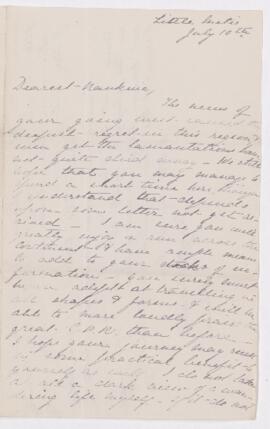 Little Metis
July 10th
Dearest Nankine,
The news of
your going west caused the
deepest regret in this region &
even yet the lamentations have
not quite died away - We still
hope that you may manage to
spend a short time here, tho
I understand that depends
upon some letter not yet
- I am sure you will
greatly enjoy a run across the
Continent & have ample means
to add to your stock of in-
formation - You surely must
be an adept at travelling in
all shapes & forms & will be
able to more loudly praise the
great C.P.R. than before -
I hope your journey may result
in some practical benefit to
yourself as well - I do not take
a dark view of a wan-
dering life myself - if it do not